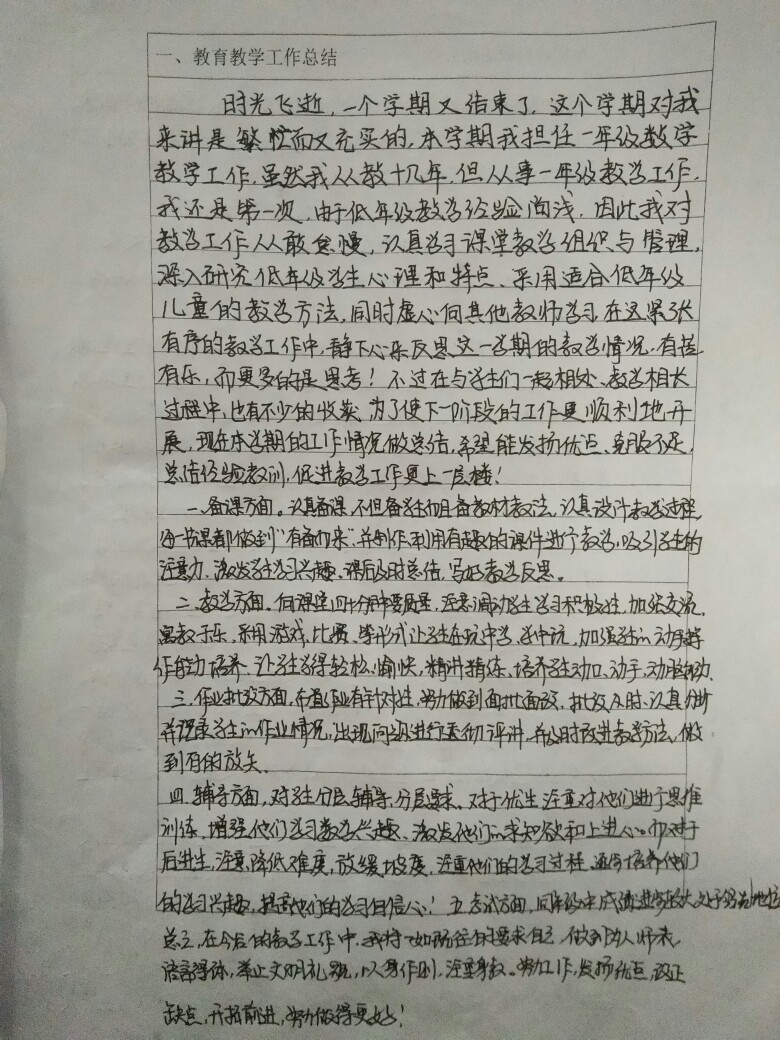 一、教育教学工作总结
时光飞逝,一个学期又结束了,这个学期对我
来讲是繁忙而又充实的,本学期我担任一年级数学
教学工作,虽然我从教十几年,但从事一年级教学工作,
我还是第一次,由于低年级教学经验尚浅,因此我对
教学工作从不敢怠慢,认真学习课堂教学组织与管理,
深入研究低年级学生心理和特点、采用适合低年级
儿童的教学方法,同时虚心向其他教师学习,在这紧张
有序的教学工作中,静下心来反思这一学期的教学情况,有苦
有乐,而更多的是思考!不过在与学生们一起相处、教学相长
过程中,也有不少的收获,为了使下一阶段的工作更顺利地开
展,现在本学期的工作情况做总结,希望能发扬优点、克服不足,
总结经验教训,促进教学工作更上一层楼!
一、备课方面。认真备课,不但备学生而且备教材教法,认真设计教学过程
每一节课都做到"有备而来",并制作利用有趣的课件进行教学,吸引学生的
注意力,激发学生学习兴趣、课后及时总结,写好教学反思。
二、教学方面。向课堂四十分钟要质量,注意调动学生学习积极性,加强交流,
寓教于乐,采用游戏、比赛、等形式让学生在玩中学、学中玩,加强学生的动手操
作能力培养、让学生学得轻松、愉快,精讲精练、培养学生动口、动手、动脑能力.
三、作业批改方面,布置作业有针对性,努力做到面批面改,批改及时、认真分析
并记录学生的作业情况,出现问题进行透彻评讲,并及时改进教学方法,做
到有的放矢、
四、辅导方面,对学生分层辅导、分层要求、对于优生注重对他们进行思维
训练、增强他们学习数学兴趣、激发他们的求知欲和上进心。而对于
后进生,注意降低难度,放缓坡度,注重他们的学习过程,逐步培养他们
的学习兴趣,提高他们的学习自信心!五、考试方面,同年级中成绩进步较大,处于领先地位
总之,在今后的教学工作中,我将一如既往的要求自己,做到为人师表,
语言得体,举止文明礼貌,以身作则,注重身教。努力工作,发扬优点,改正
缺点,开拓前进,努力做得更好!